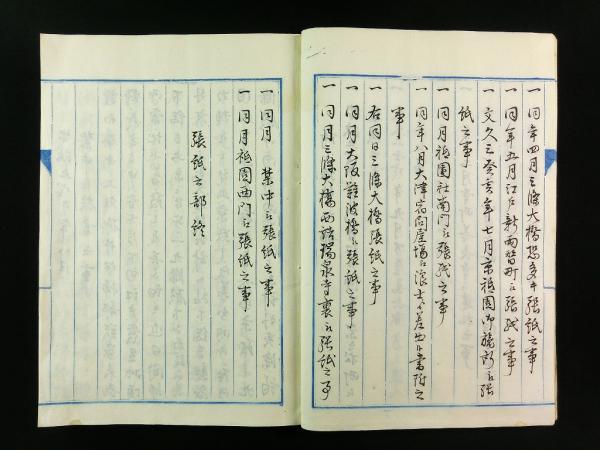 一同年四月三條大橋張紙之事
一同年五月江戸新両替町江張紙之事
一文久三癸亥年七月京祇園御旅所江張
紙之事
一同月祇園社南門江張紙之事
一同年八月大津宿問屋場江浪士差出ス書附之
事
一右同日三條大橋張紙之事
一同月大阪難波橋江張紙之事
一同月三條大橋西詰瑞泉寺裏江張紙之事
一同月 中江張紙之事
一同月祇園西門江張紙之事
張紙之部終